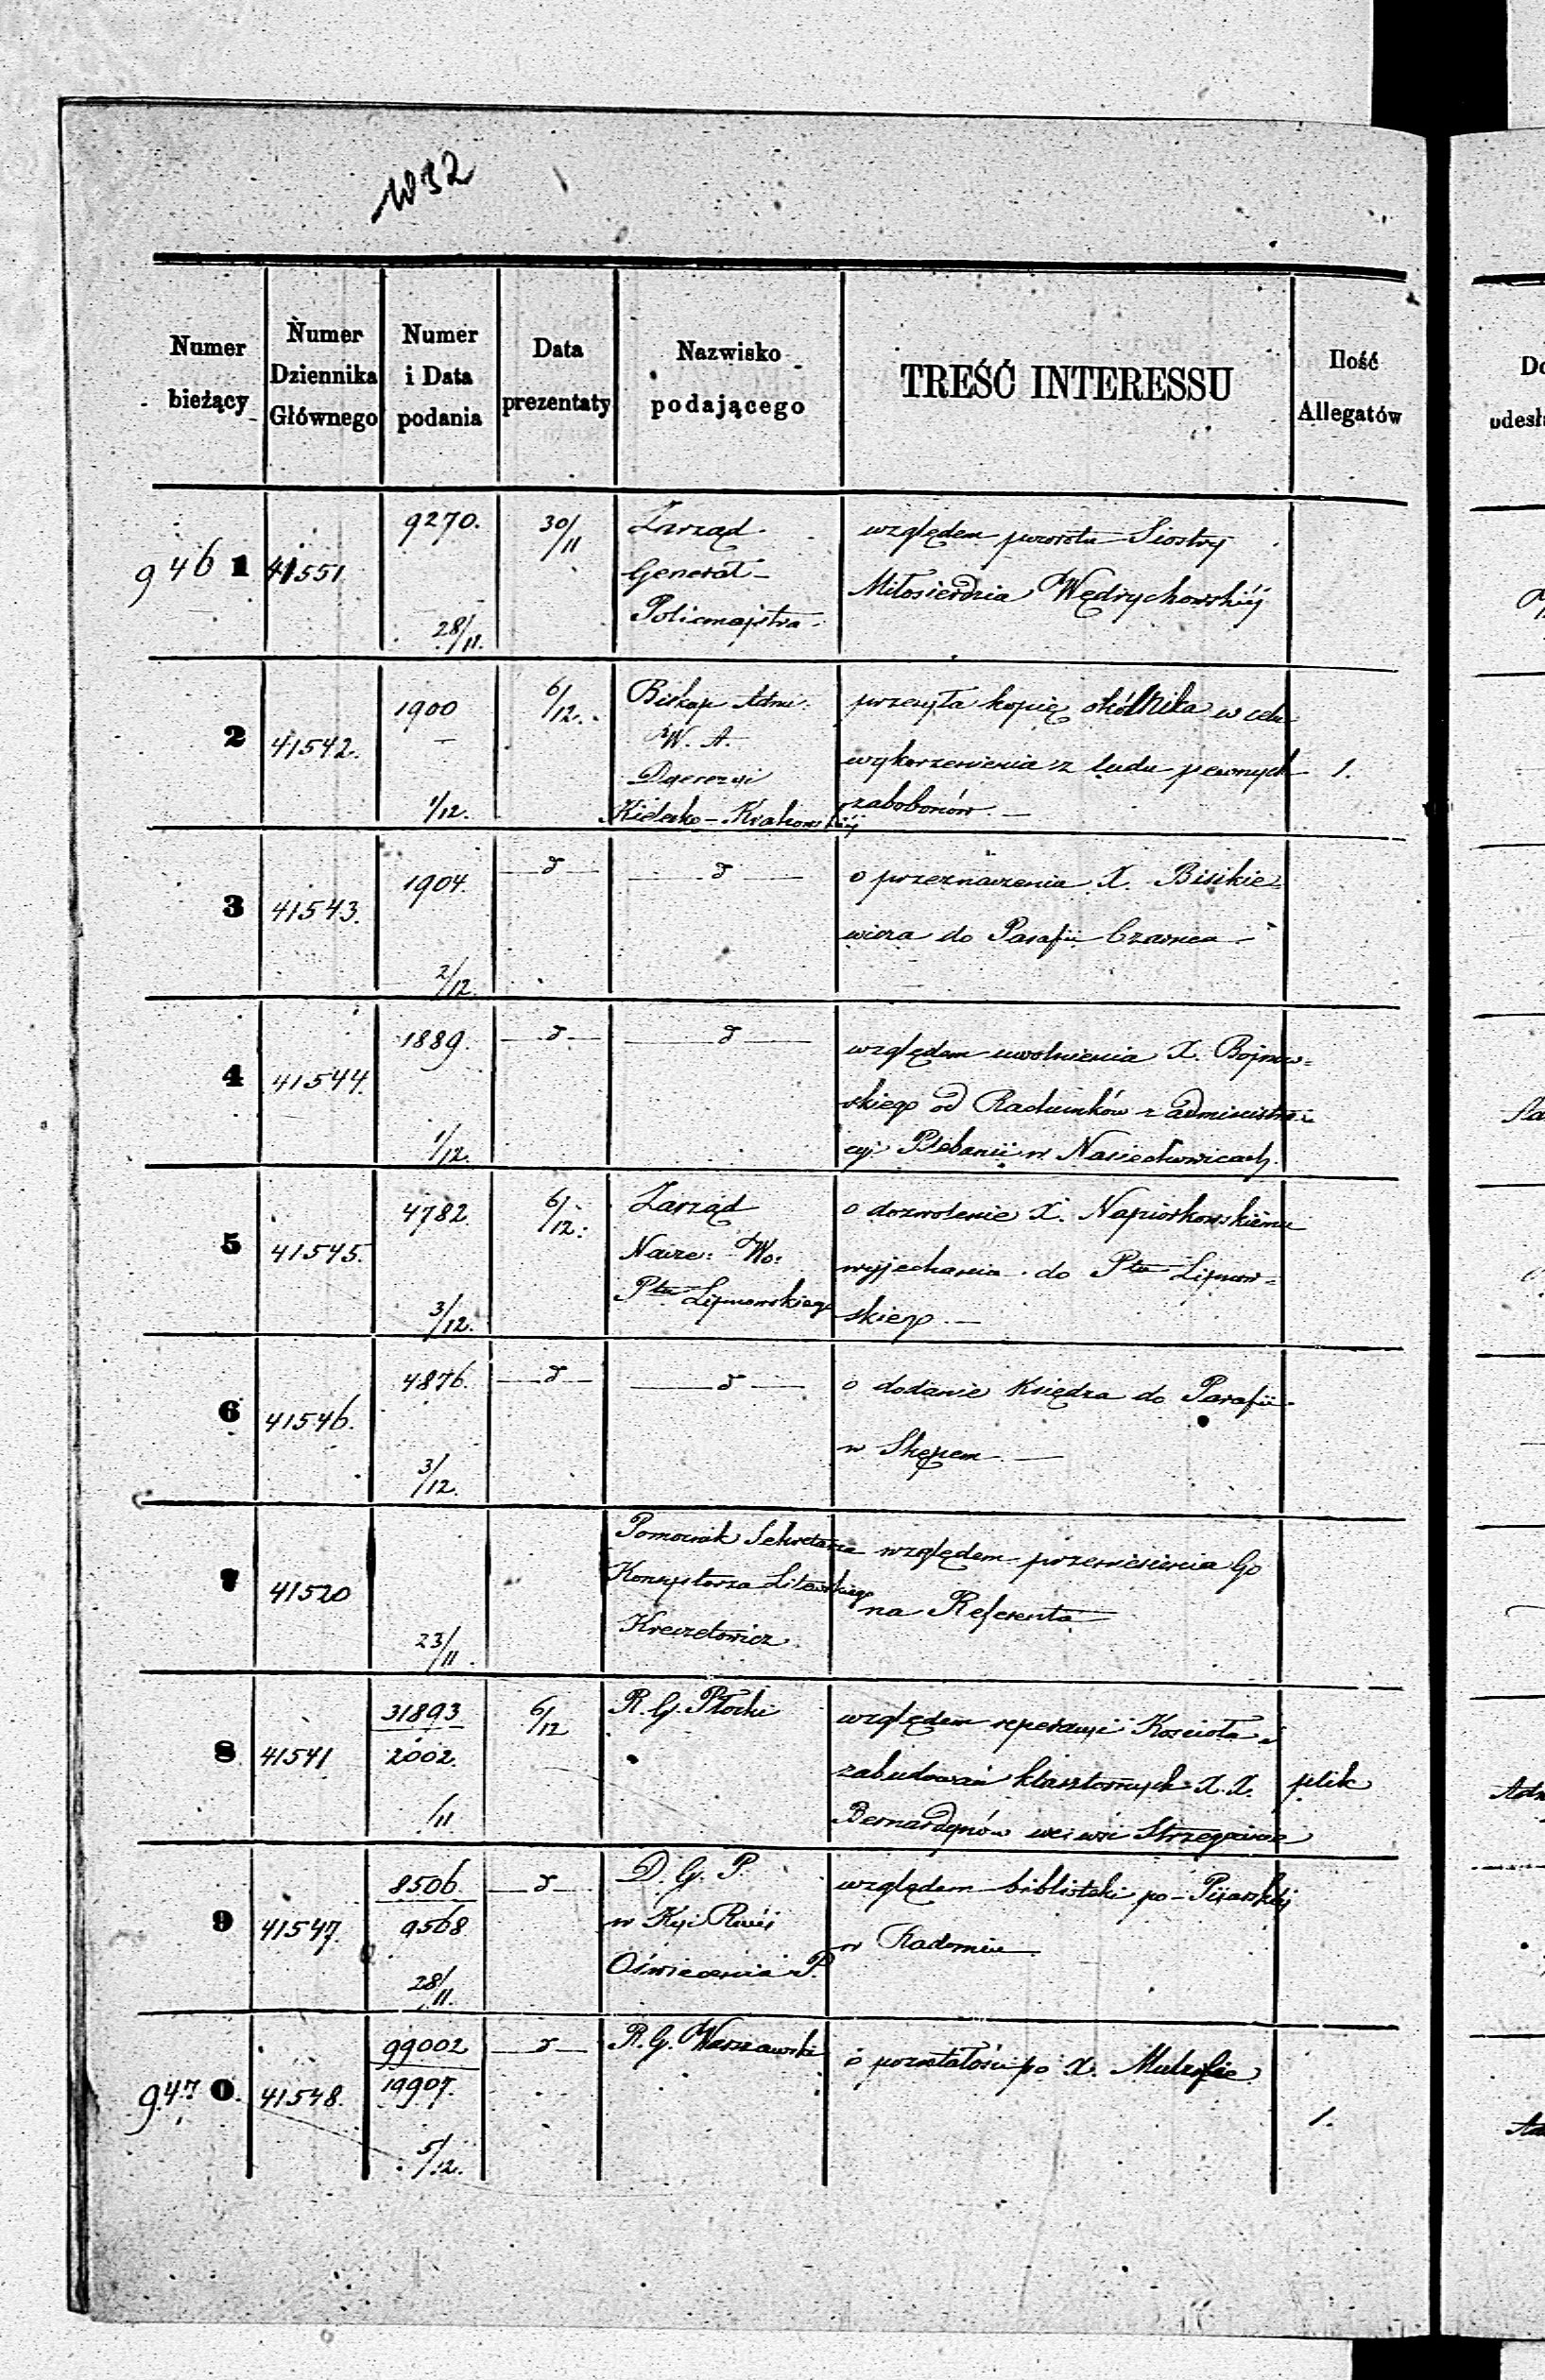 1032
Numer bieżący
Numer Dziennika Głównego
Numer i Data podania
Data prezentaty
Nazwisko podającego
TREŚĆ INTERESSU
Ilość Allegatów
946 1
41551
9270.
28/11.
30/11
Zarząd
Generał
Policmajstra
względem powrotu Siostry
Miłosierdzia Wędrychowskiéj
2
41542.
1900
1/12.
6/12.
Biskup Adm:
W. A.
Dyecezyi
Kielecko-Krakowskiéj
przesyła kopię okólnika w celu
wykorzenienia z ludu pewnych
zabobonów.
1.
3
41543.
1904.
2/12.
d
d
o przeznaczenia X. Bisikie=
wicza do Parafii Czarnca
4
41544.
1889.
1/12.
d
d
względem uwolnienia X. Bojnow=
skiego od Rachunków z administra
cyi Plebanii w Nasiechowicach.
5
41545.
4782
3/12.
6/12.
Zarząd
Nacze: Wo:
Ptu Lipnowskiego
o dozwolenie X. Napiorkowskiemu
wyjechania do Ptu Lipnow=
skiego.
6
41546.
4876.
3/12.
d
d
o dodanie Księdza do Parafii
w Skępem.
7
41520
23/11.
Pomocnik Sekretarza
Konsystorza Litewskiego
Kreczetowicz
względem przeniesienia Go
na Referenta
8
41541
31893
2002.
/11
6/12
R. G. Płocki
względem reperacyi Kościoła i
zabudowań klasztornych X.X.
Bernardynów we wsi Strzegocinie
plik
9
41547.
8506
9568
28/11.
d
D. G. P.
w Kyi Rząd:
Oświecenia P.
względem biblioteki po-Pijarskiéj
w Radomiu
947 0.
41548.
99002
19907.
5/12.
d
R. G. Warszawski
o pozostałości po X.
1.
Do